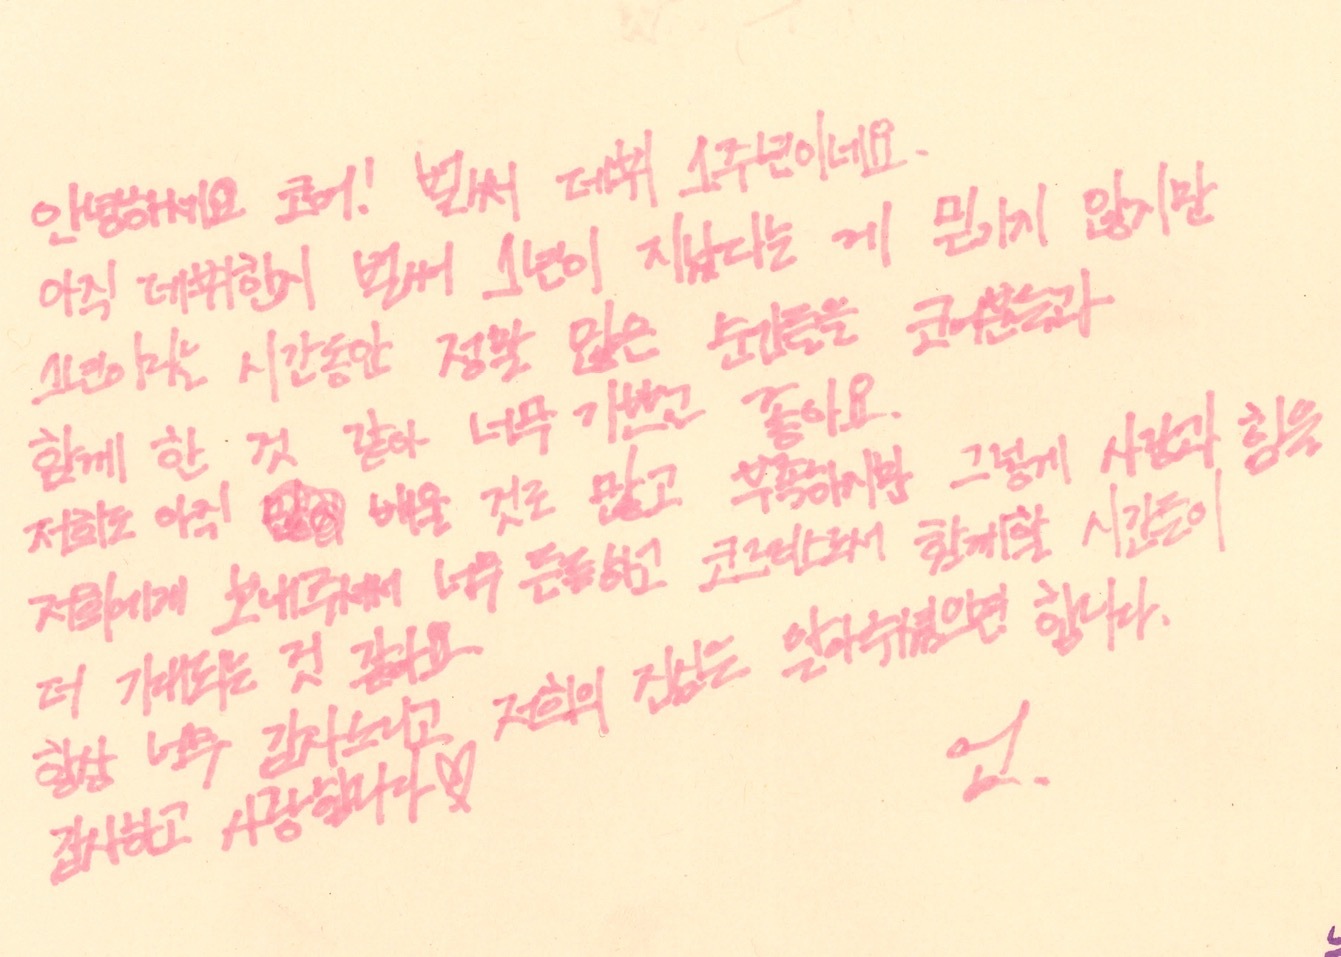 안녕하세요 코어! 벌써 데뷔 1주년이네요.
아직 데뷔한지 벌써 1년이 지났다는 게 믿기지 않지만
1년이라는 시간동안 정말 많은 순간들을 코어분들과
함께 한 것 같아 너무 기쁘고 좋아요.
저희도 아직 배울 것도 많고 부족하지만 그렇게 사랑과 힘을
저희에게 보내주셔서 너무 든든하고 코르티스로서 함께할 시간들이
더 기대되는 것 같아요
항상 너무 감사드리고 저희의 진심을 알아주셨으면 합니다.
감사하고 사랑합니다♡